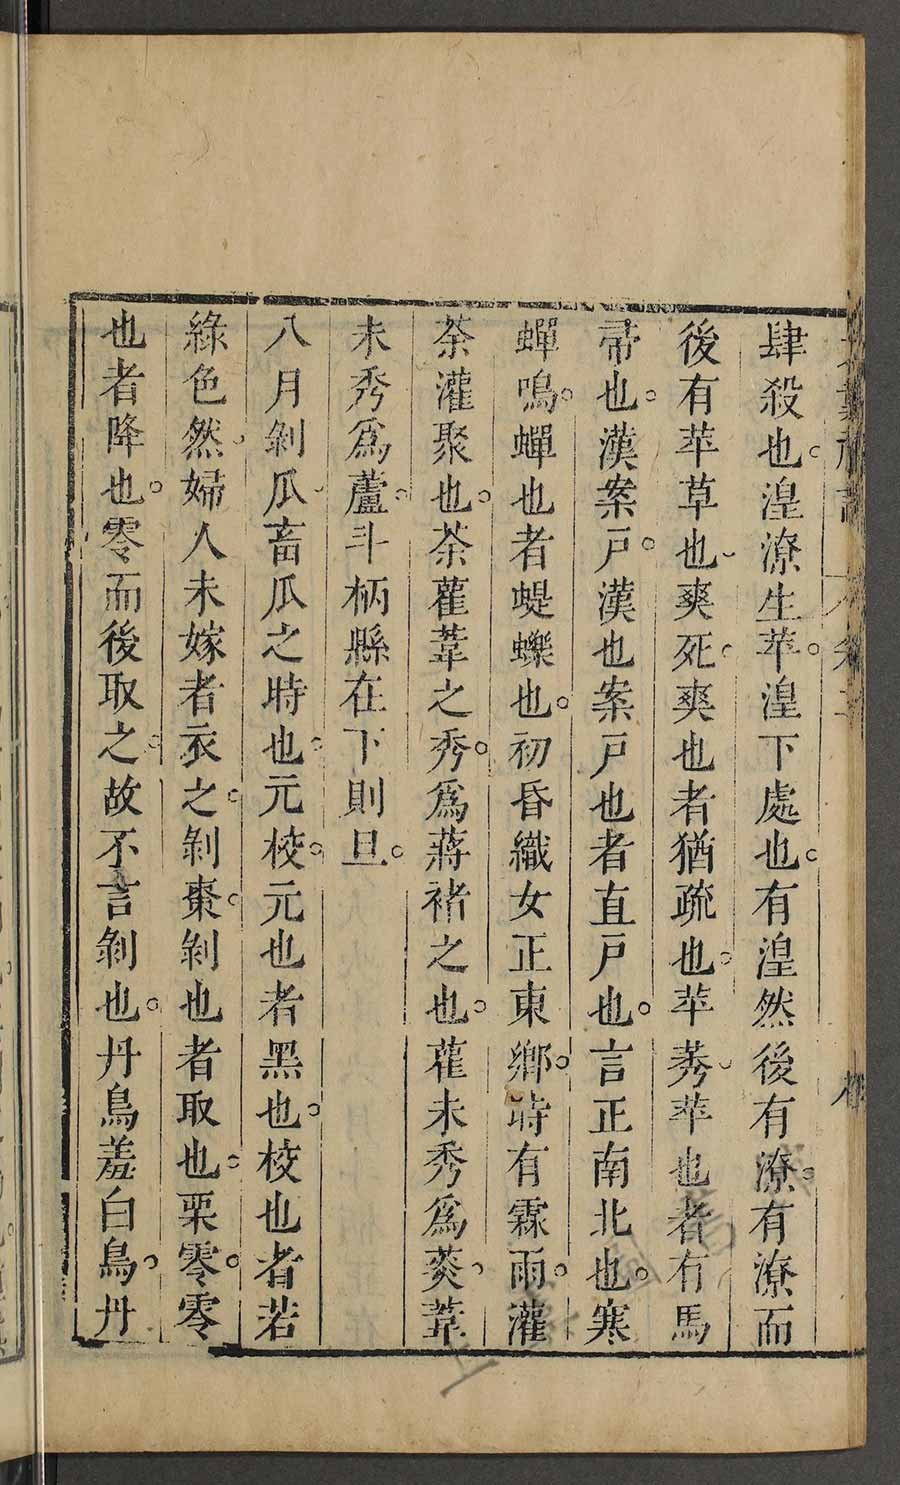 肆殺也。湟潦生苹。湟下處也。有湟然後有潦。有潦而
後有苹草也、爽死。爽也者猶疏也。苹莠、苹也者有馬
帚也。漢案戶。漢也案戶也者直戶也。言正南北也。寒
蟬鳴。蟬也者蝭蠑也。初昏織女正東鄉。時有霖雨。灌
荼灌聚也。荼雚葦之秀。爲蔣褚之也。雚未秀爲菼、葦
未秀爲蘆。斗柄縣在下則旦。
八月剝瓜、畜瓜之時也。元校。元也者黑也。校也者若
綠色然、婦人未嫁者衣之。剝棗。剝也者取也。栗零。零
也者降也。零而後取之。故不言剝也。丹鳥羞白鳥。丹